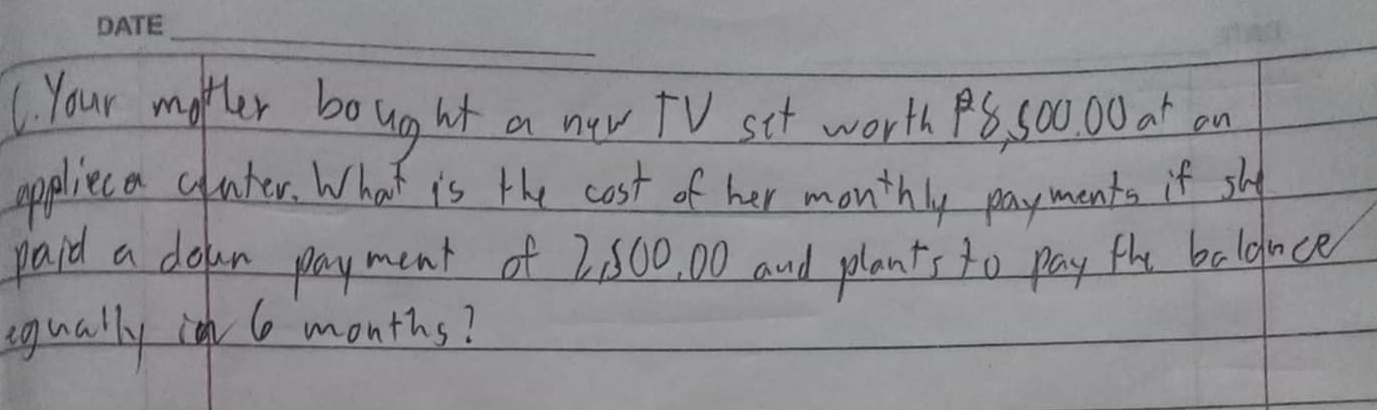 DATE
1. Your mother bought a new TV set worth ₱8,500.00 at an
applieca center. What is the cost of her monthly payments if she
paid a down payment of 2,500.00 and plants to pay the balance
equally in 6 months?